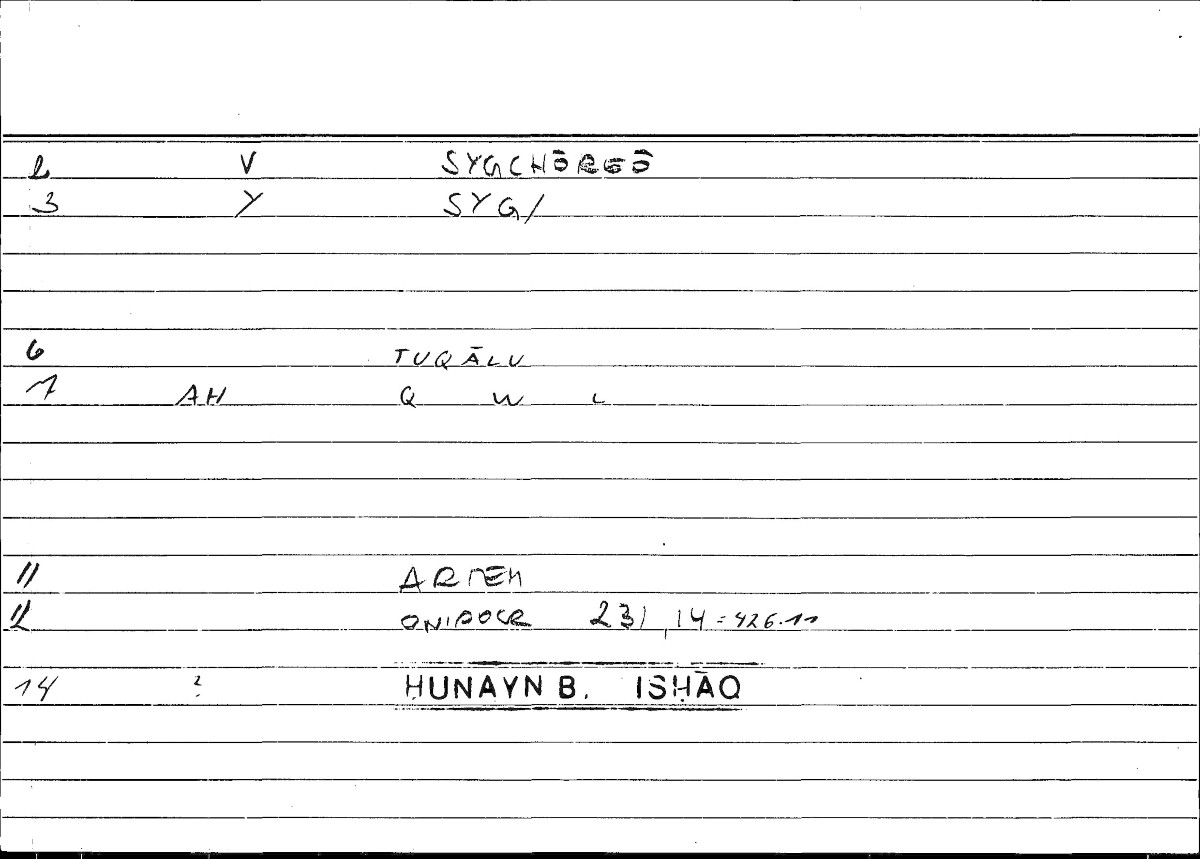 2 V SYGCHŌREŌ
3 Y SYG/
6 TUQĀLU
7 AH Q W L
11 ARTEM
12 ONIROCR 231,14 = 426.11
14 ? HUNAYN B. ISḤĀQ